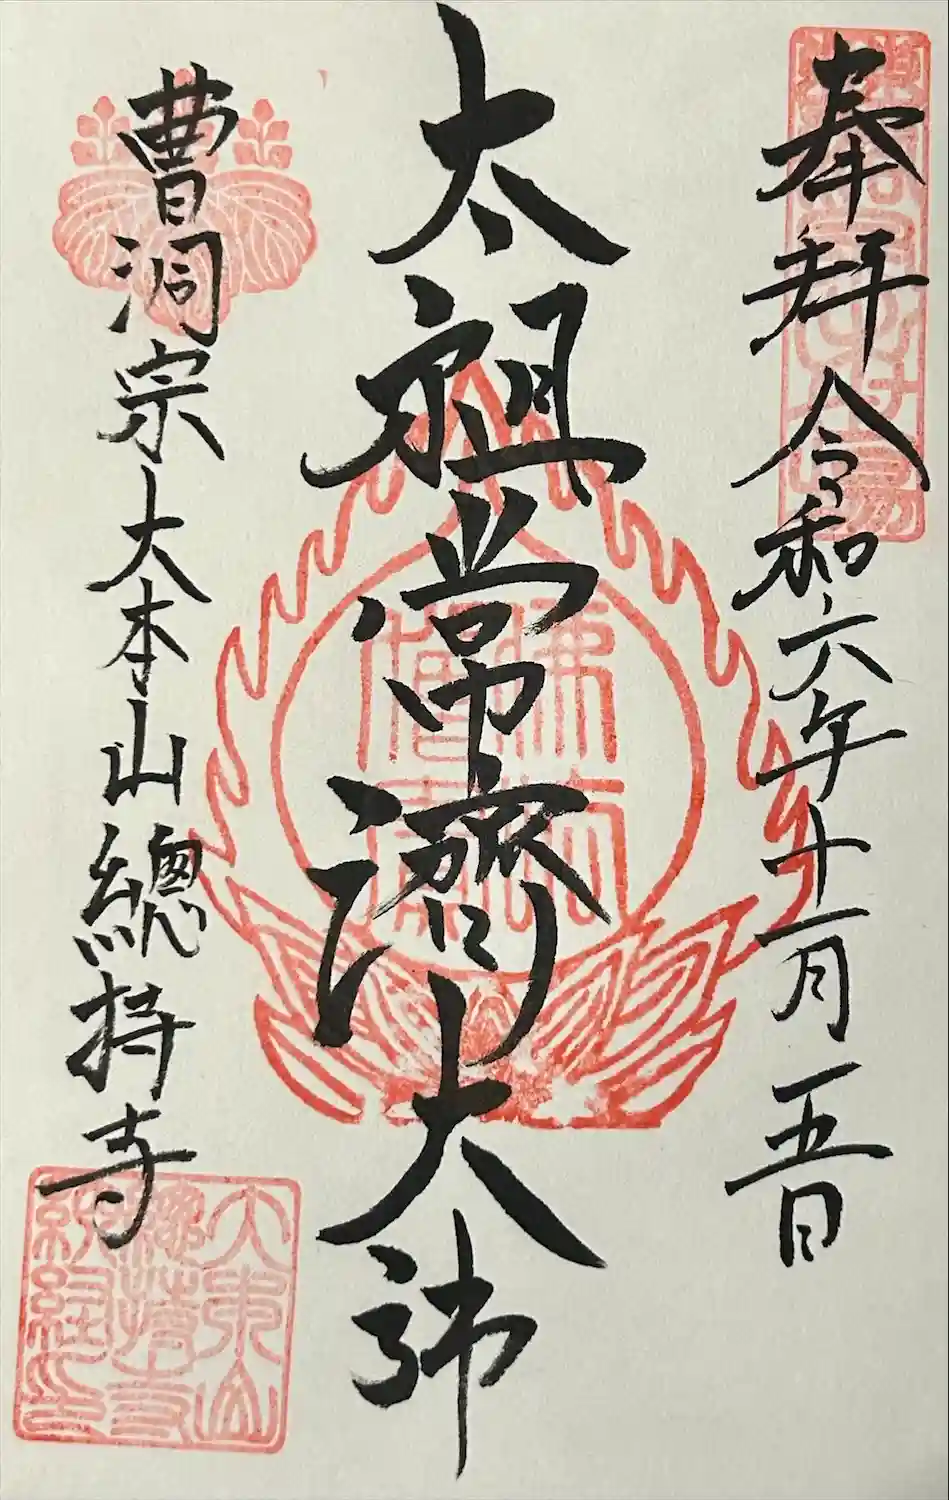 奉拝 令和六年十一月五日
太祖常濟大師
曹洞宗大本山總持寺
佛法
僧寶
大本山
總持寺
納経印